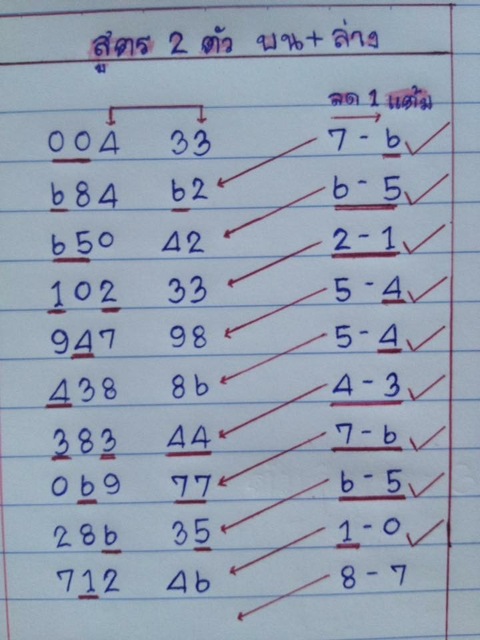 สูตร 2 ตัว บน+ล่าง
ลด 1 แต้ม
004 33 7-6
684 62 6-5
650 42 2-1
102 33 5-4
947 98 5-4
438 86 4-3
383 44 7-6
069 77 6-5
286 35 1-0
712 46 8-7